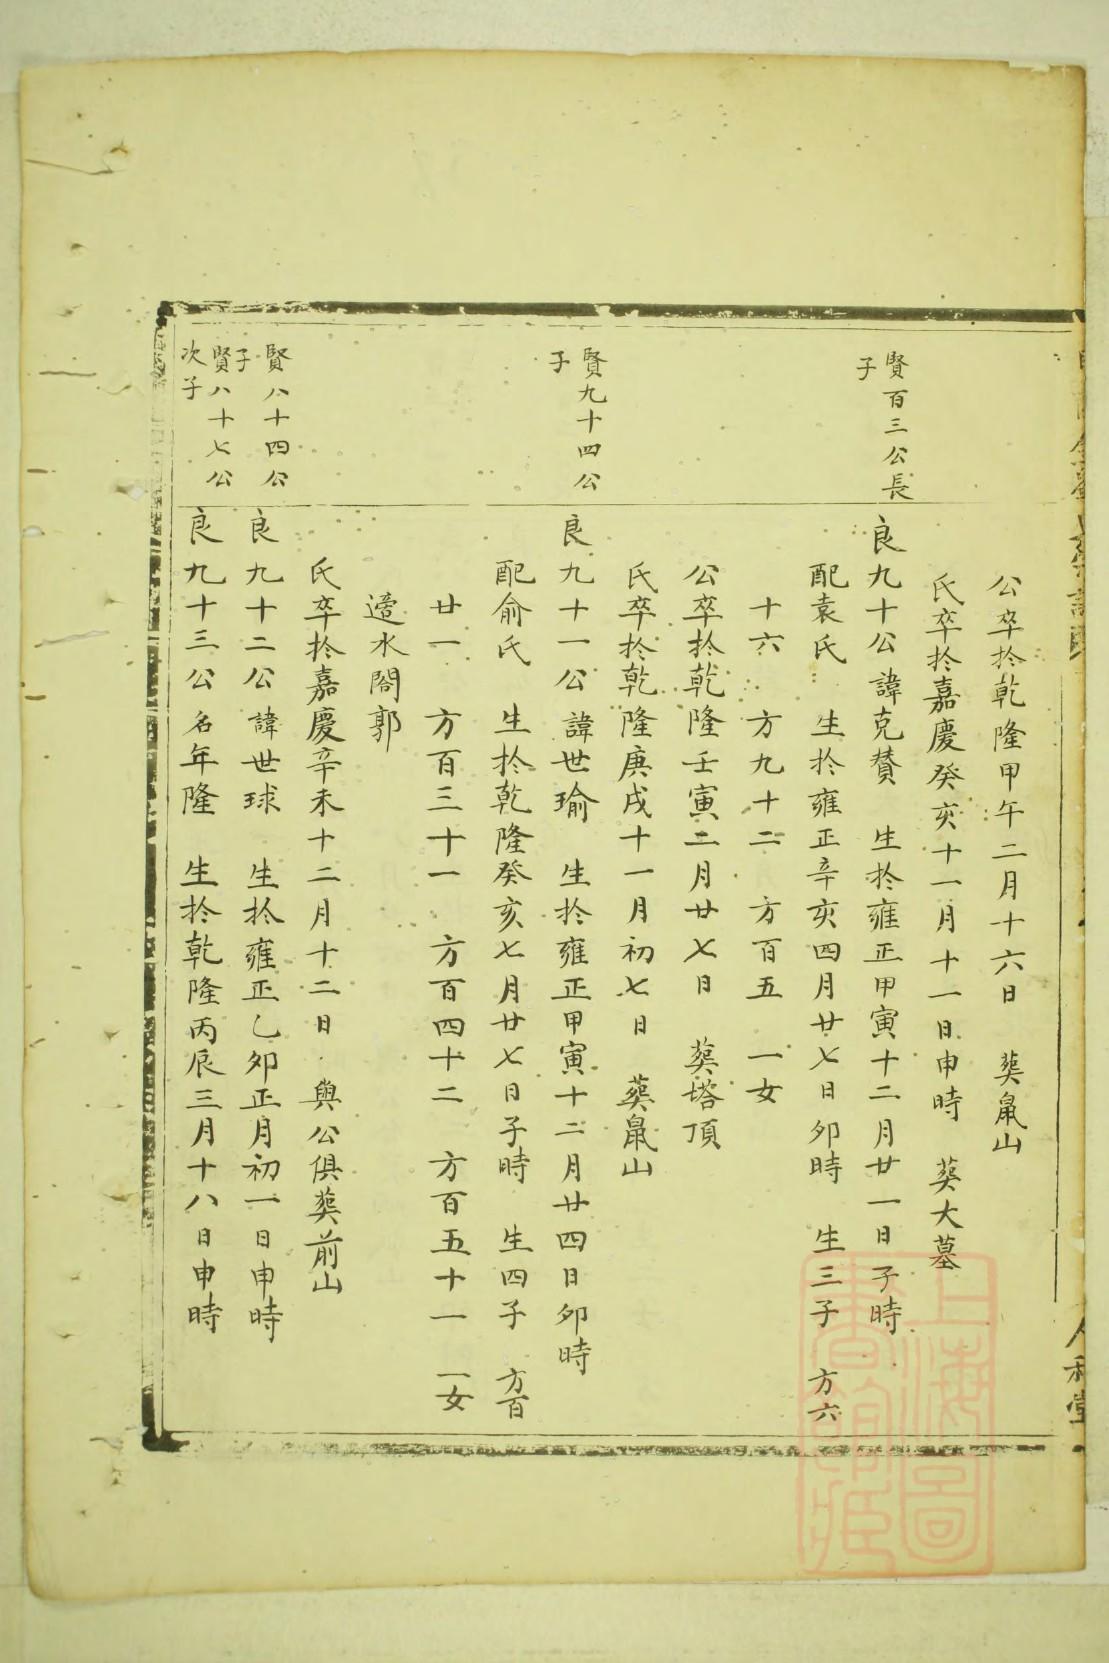 公卒於乾隆甲午二月十六日 葬鼠山
氏卒於嘉慶癸亥十一月十一日申時 葬大墓
賢百三公長
子
良九十公諱克贊 生於雍正甲寅十二月廿一日子時
配袁氏 生於雍正辛亥四月廿七日卯時 生三子 方六
十六 方九十二 方百五 一女
公卒於乾隆壬寅二月廿七日 葬塔頂
氏卒於乾隆庚戌十一月初七日 葬鼠山
賢九十四公
子
良九十一公諱世瑜 生於雍正甲寅十二月廿四日卯時
配俞氏 生於乾隆癸亥七月廿七日子時 生四子 方百
廿一 方百三十一 方百四十二 方百五十一 一女
適水閣郭
氏卒於嘉慶辛未十二月十二日 與公俱葬前山
賢八十四公
子
良九十二公諱世球 生於雍正乙卯正月初一日申時
賢八十七公
次子
良九十三公名年隆 生於乾隆丙辰三月十八日申時
人和堂
上海圖
書館藏